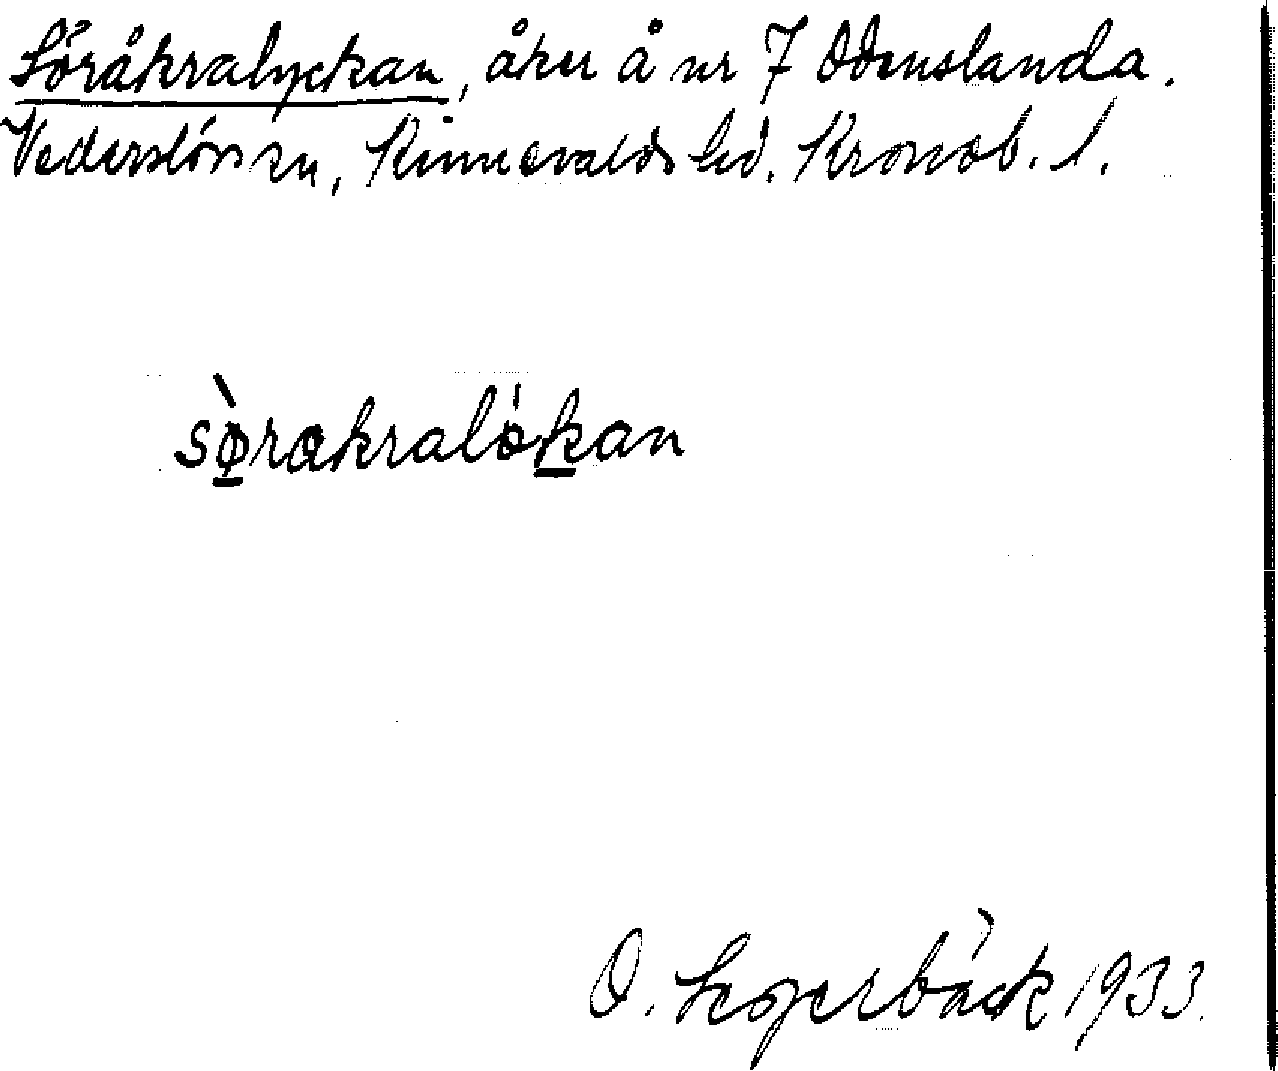 Söråkralyckan, åker å nr 7 Odenslanda.
Vederslövs sn, Kinnevalds hd. Kronob. l.
sø̀rakralȯkan
O. 1933.